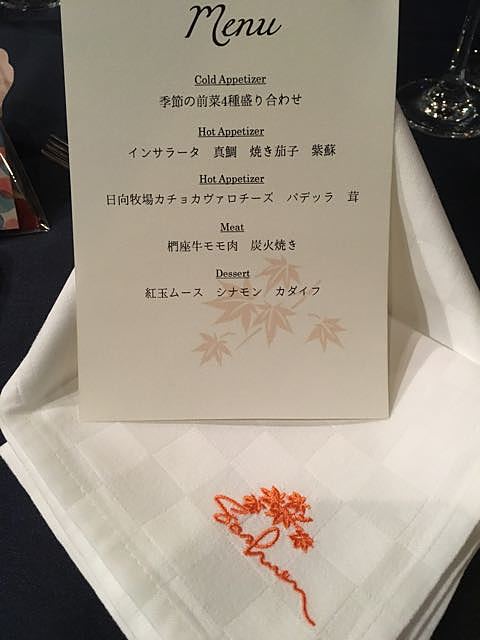 Menu
Cold Appetizer
季節の前菜4種盛り合わせ
Hot Appetizer
インサラータ　真鯛　焼き茄子　紫蘇
Hot Appetizer
日向牧場カチョカヴァロチーズ　パデッラ　茸
Meat
椚座牛モモ肉　炭火焼き
Dessert
紅玉ムース　シナモン　カダイフ